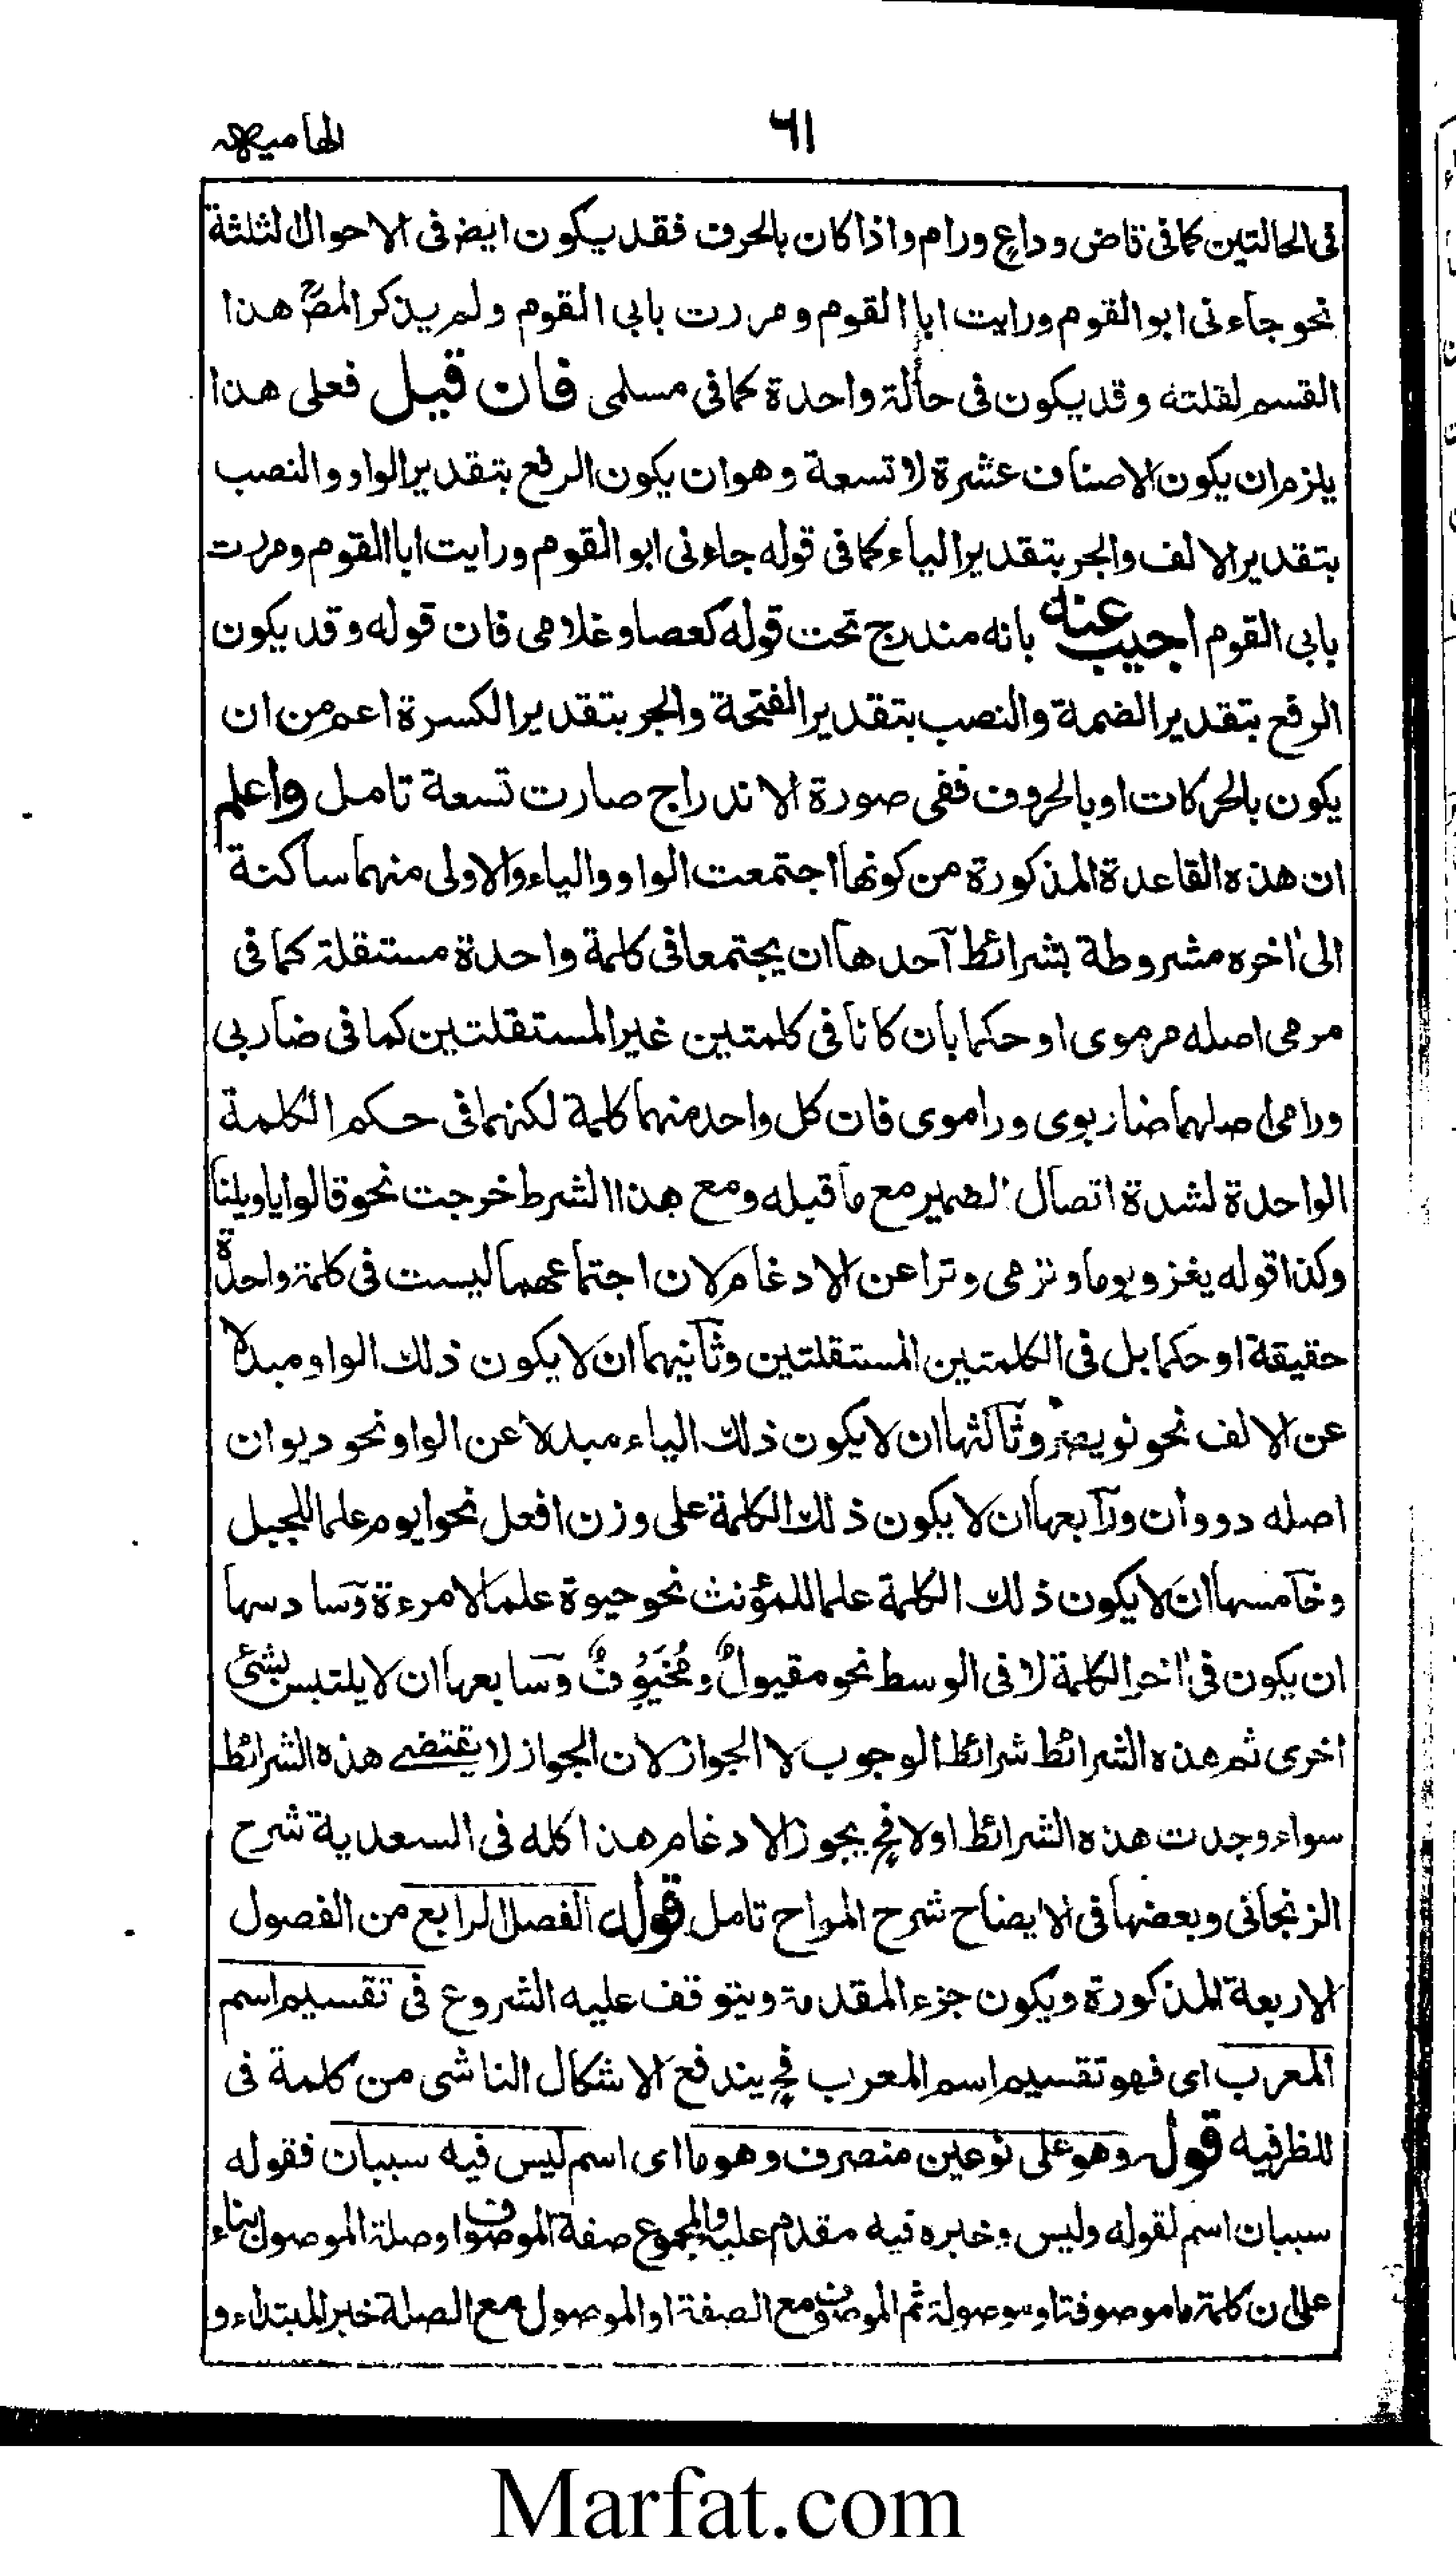 ٦١
الهاميه
فى الحالتين كما فى قاض وداع ورام واذا كان بالحرف فقد يكون ايض فى الاحوال الثلثة
نحو جاءنى ابوالقوم ورايت ابا القوم ومررت بابى القوم ولم يذكر المصؒ هذا
القسم لقلته وقد يكون فى حالة واحدة كما فى مسلمى فان قيل فعلى هذا
يلزم ان يكون الاصناف عشرة لا تسعة وهو ان يكون الرفع بتقدير الواو والنصب
بتقدير الالف والجر بتقدير الياء كما فى قوله جاءنى ابو القوم ورايت ابا القوم ومررت
بابى القوم اجيب عنه بانه مندرج تحت قوله كعصا وغلامى فان قوله وقد يكون
الرفع بتقدير الضمة والنصب بتقدير الفتحة والجر بتقدير الكسرة اعم من ان
يكون بالحركات او بالحروف ففى صورة الاندراج صارت تسعة تامل واعلم
ان هذه القاعدة المذكورة من كونها اجتمعت الواو والياء والاولى منهما ساكنة
الى اخره مشروطة بشرائط آحدها ان يجتمعا فى كلمة واحدة مستقلة كما فى
مرمى اصله مرموى او حكما بان كانا فى كلمتين غير المستقلتين كما فى ضاربى
ورامى اصلهما ضاربوى وراموى فان كل واحد منهما كلمة لكنهما فى حكم الكلمة
الواحدة لشدة اتصال الضمير مع ما قبله ومع هذا الشرط خرجت نحو قالوا ياويلنا
وكذا قوله يغزو يوما وترمى وترا عن الادغام لان اجتماعهما ليست فى كلمة واحدة
حقيقة او حكما بل فى الكلمتين المستقلتين وثآنيهما ان لا يكون ذلك الواو مبدلا
عن الالف نحو نويصر وثآلثها ان لا يكون ذلك الياء مبدلا عن الواو نحو ديوان
اصله دووان ورآبعها ان لا يكون ذلك الكلمة على وزن افعل نحو ايوم علما للجبل
وخآمسها ان لا يكون ذلك الكلمة علما للمؤنث نحو حيوة علما لامرءة وسادسها
ان يكون فى اخر الكلمة لا فى الوسط نحو مقيولٌ ومُخْيَوُفٌ وسابعها ان لا يلتبس بشئ
اخرى ثم هذه الشرائط شرائط الوجوب لا الجواز لان الجواز لا يقتضے هذه الشرائط
سواء وجدت هذه الشرائط اولا فح يجوز الادغام هذا كله فى السعدية شرح
الزنجانى وبعضها فى الايضاح شرح المراح تامل قوله الفصل الرابع من الفصول
الاربعة المذكورة ويكون جزء المقدمة ويتوقف عليه الشروع فى تقسيم اسم
المعرب اى فهو تقسيم اسم المعرب فح يندفع الاشكال الناشى من كلمة فى
للظرفيه قوله وهو على نوعين منصرف وهو ما اى اسم ليس فيه سببان فقوله
سببان اسم لقوله وليس وخبره فيه مقدم عليه والمجموع صفة الموصوف او صلة الموصول بناء
على ان كلمة ما موصوفة او موصولة ثم الموصوف مع الصفة او الموصول مع الصلة خبر المبتداء و
Marfat.com